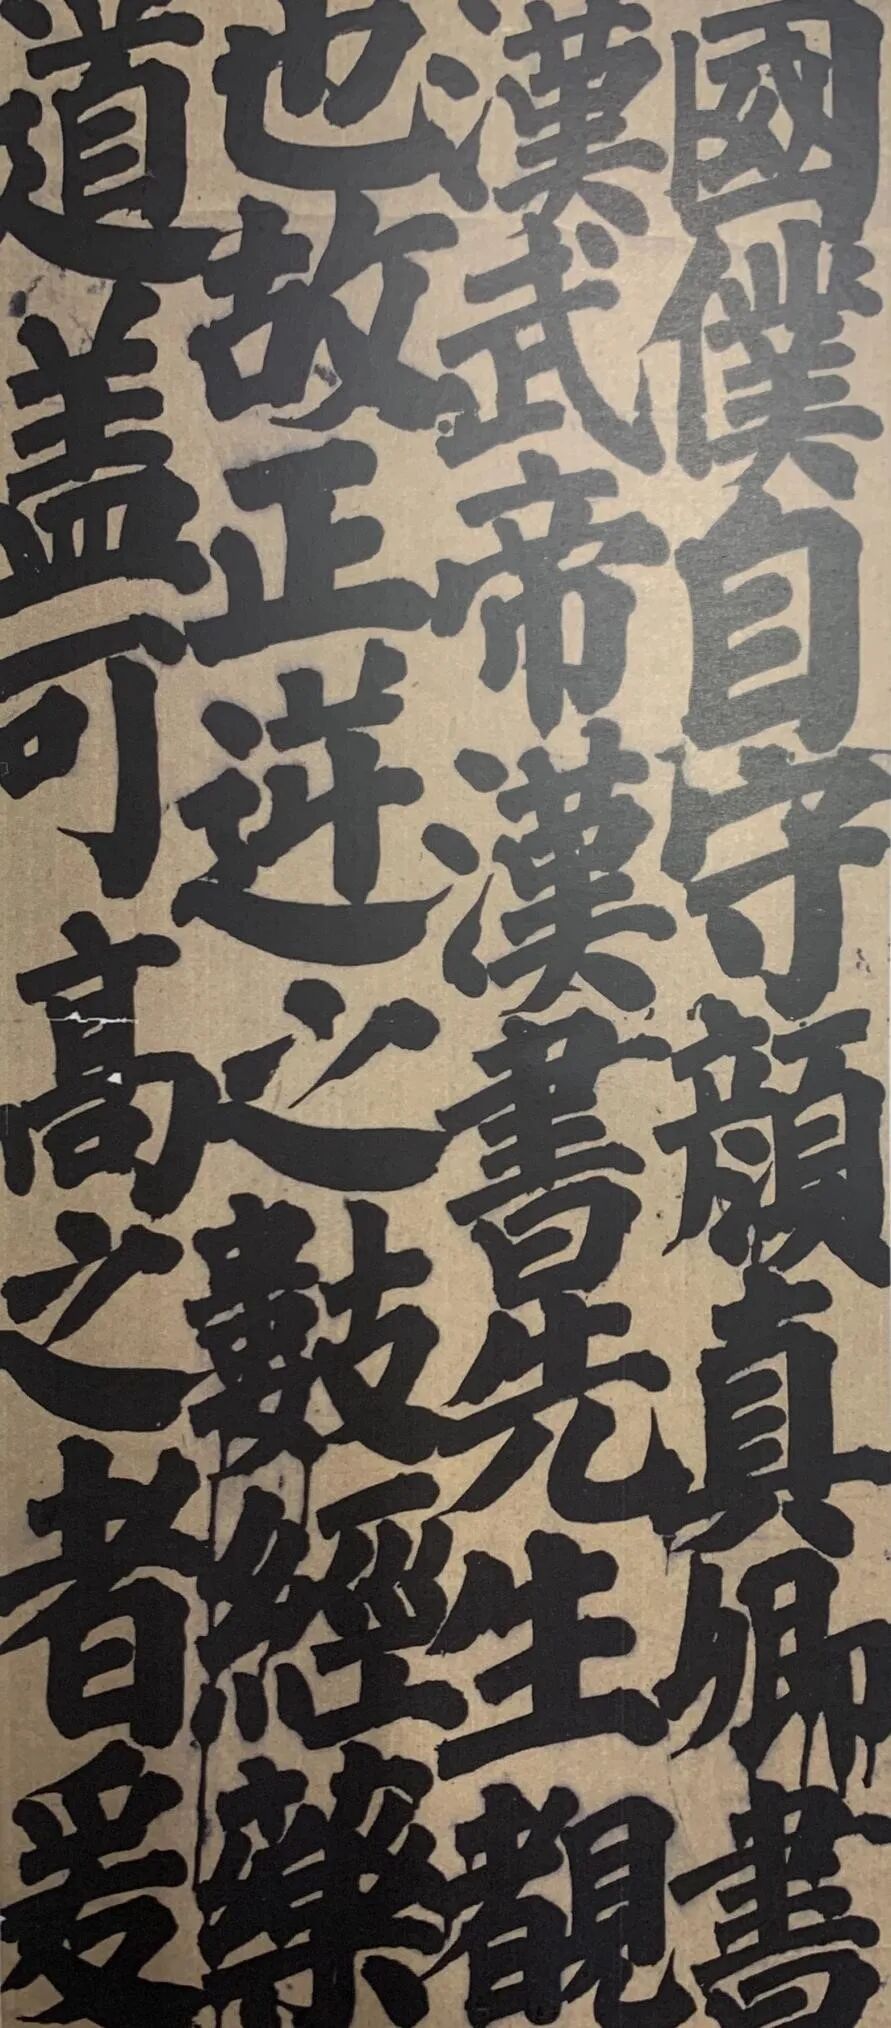 國僕自守顏真卿書
漢武帝漢書先生覩
也故正逆之數經藥
道盖可髙之者爰